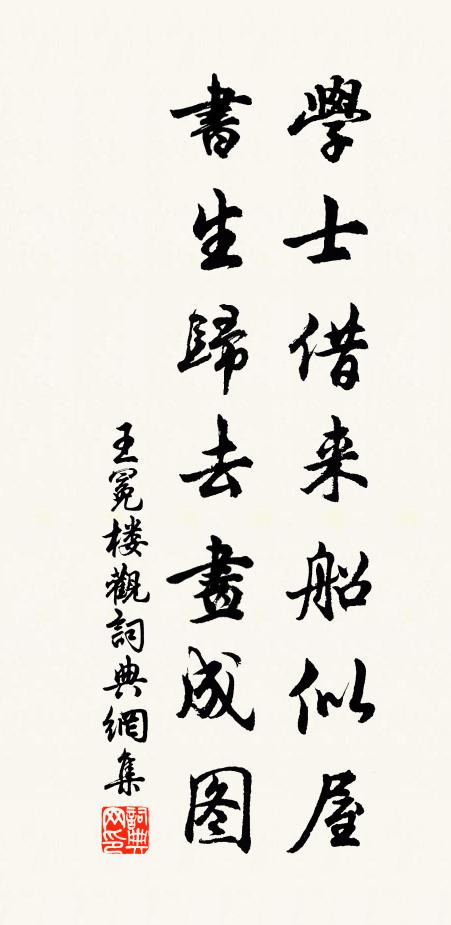 學士借来船似屋
書生歸去畫成图
王冕楼觀詞典網集
詞典网印